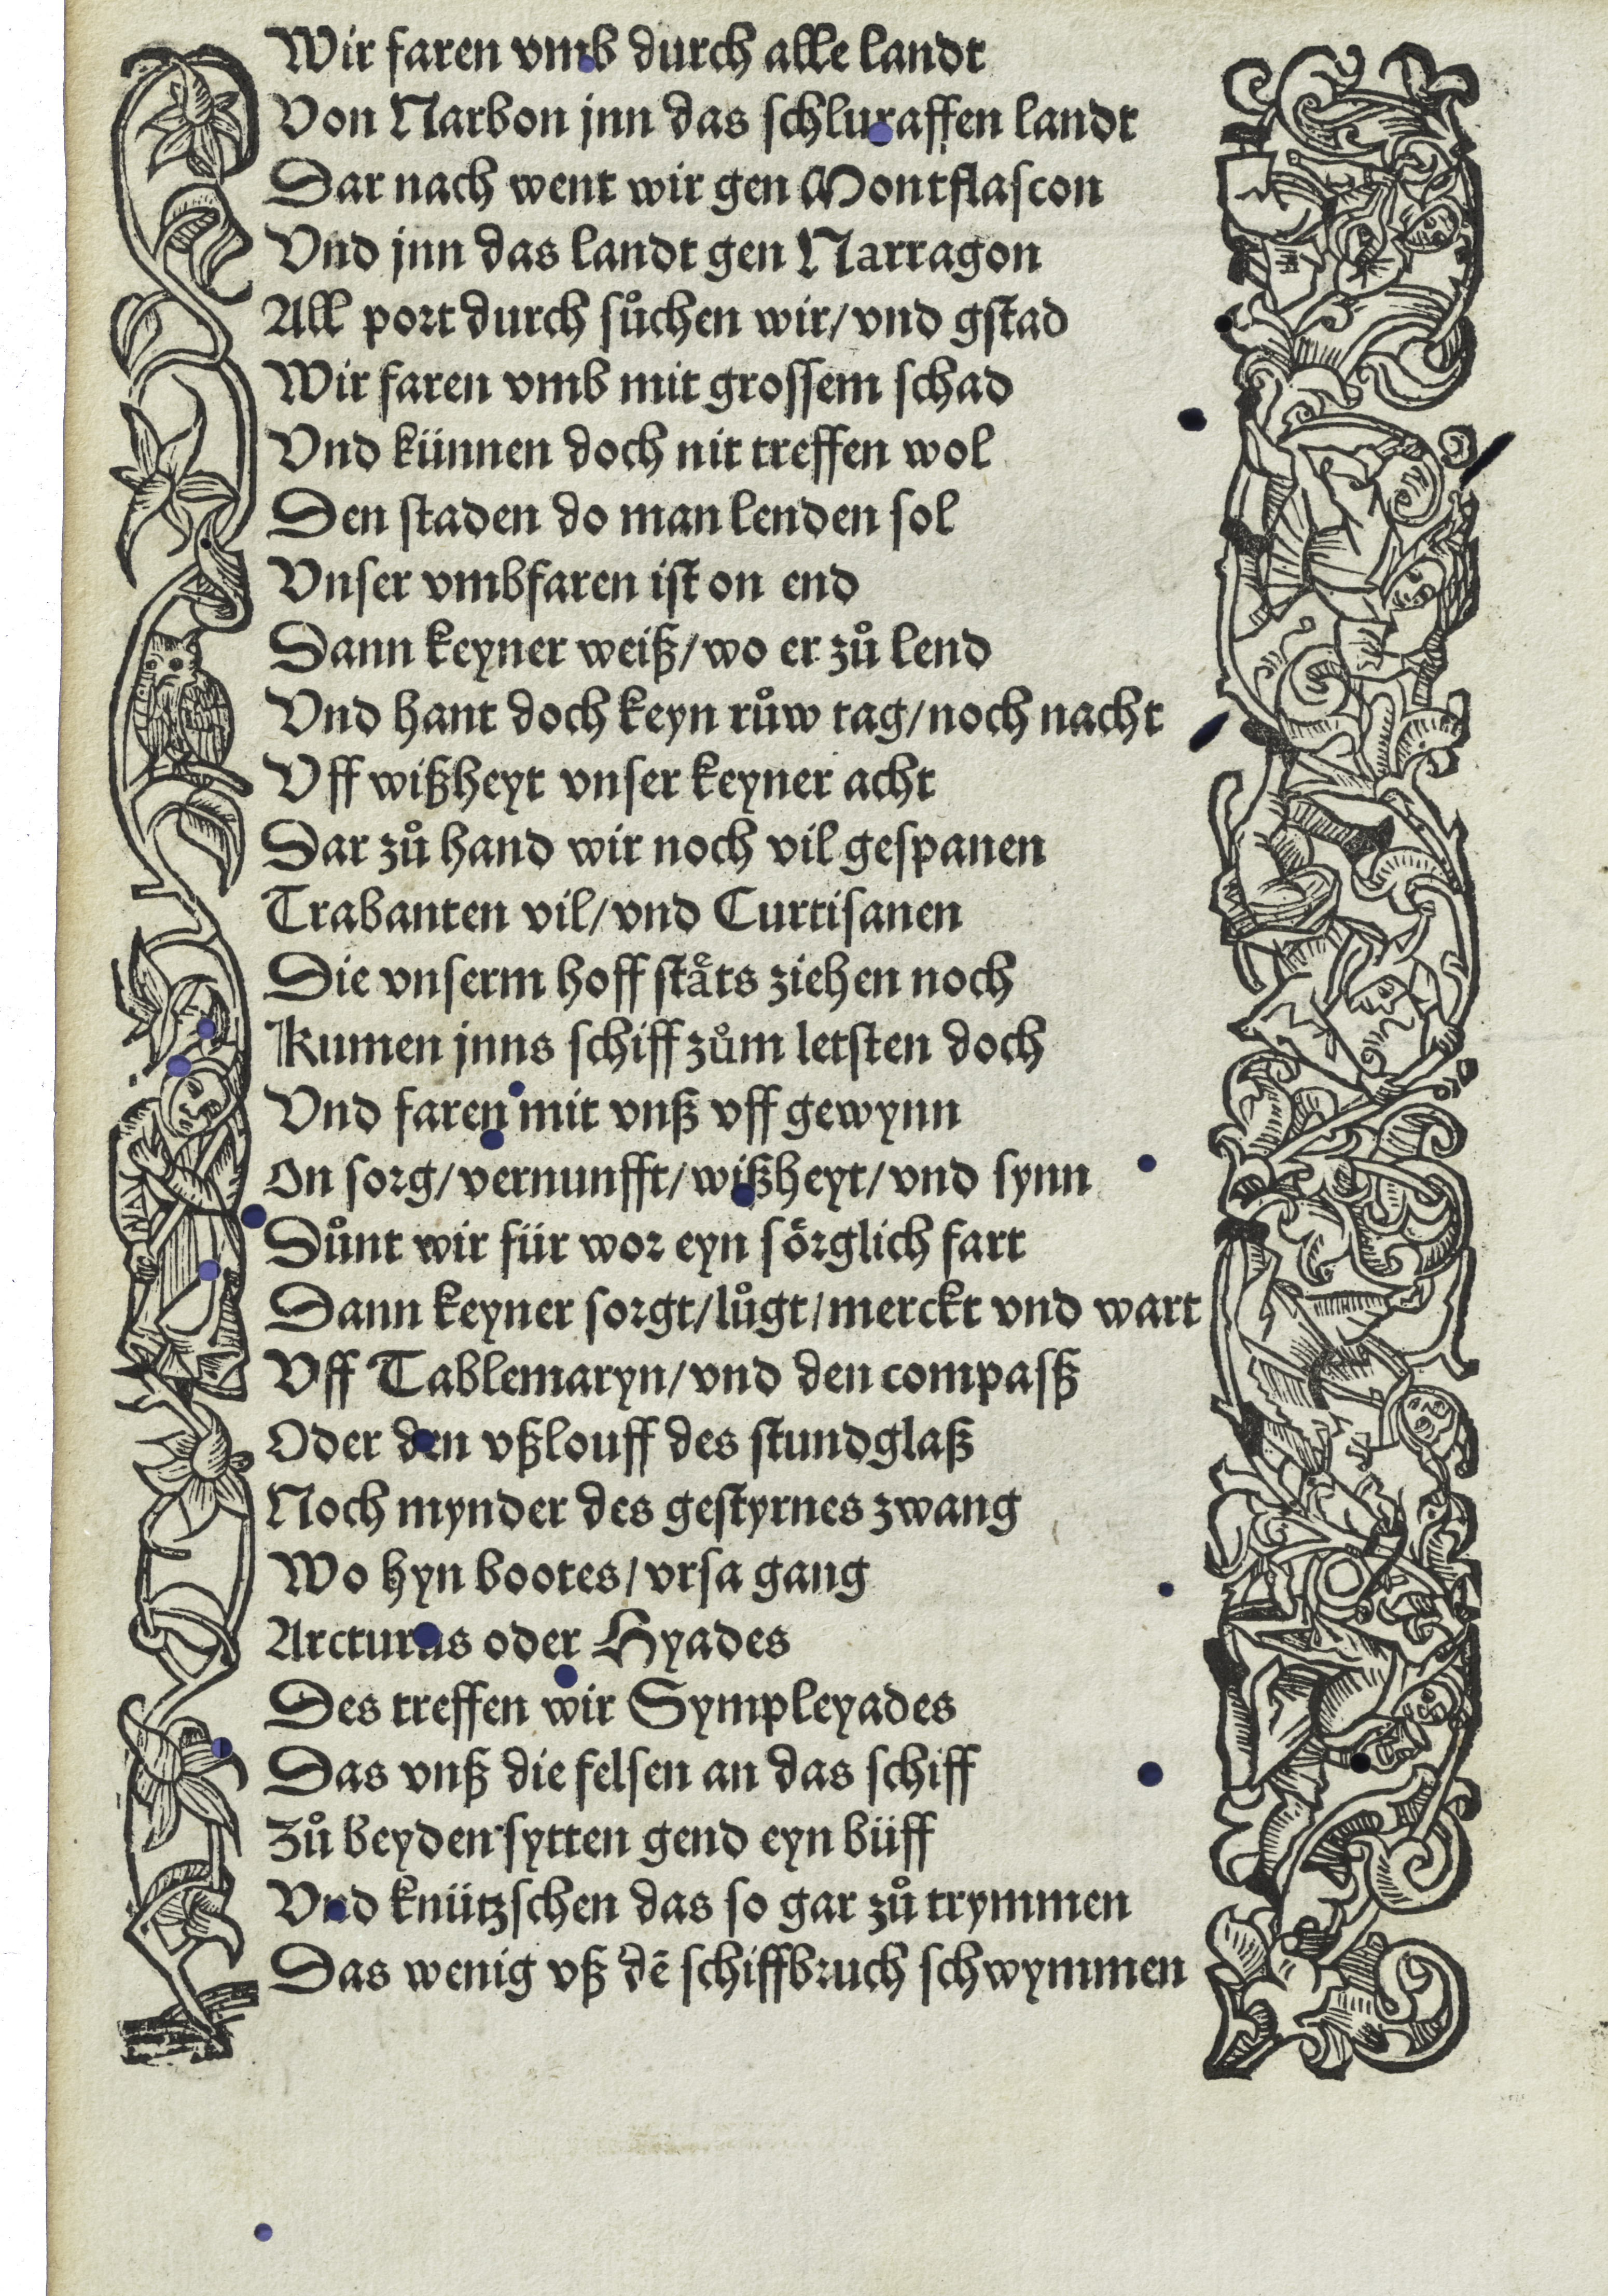 Wir faren vmb durch alle landt
Von Narbon jnn das schluraffen landt
Dar nach went wir gen Montflascon
Vnd jnn das landt gen Narragon
All port durch sůchen wir/vnd gstad
Wir faren vmb mit grossem schad
Vnd künnen doch nit treffen wol
Den staden do man lenden sol
Vnser vmbfaren ist on end
Dann keyner weiß/wo er zů lend
Vnd hant doch keyn růw tag/noch nacht
Vff wißheyt vnser keyner acht
Dar zů hand wir noch vil gespanen
Trabanten vil/vnd Curtisanen
Die vnserm hoff stäts ziehen noch
Kumen jnns schiff zům letsten doch
Vnd faren mit vnß vff gewynn
On sorg/vernunfft/wißheyt/vnd synn
Důnt wir für wor eyn sörglich fart
Dann keyner sorgt/lůgt/merckt vnd wart
Vff Tablemaryn/vnd den compasß
Oder den vßlouff des stundglaß
Noch mynder des gestyrnes zwang
Wo hyn bootes/vrsa gang
Arcturus oder Hyades
Des treffen wir Sympleyades
Das vnß die felsen an das schiff
Zů beyden sytten gend eyn büff
Vnd knützschen das so gar zů trymmen
Das wenig vß dē schiffbruch schwymmen